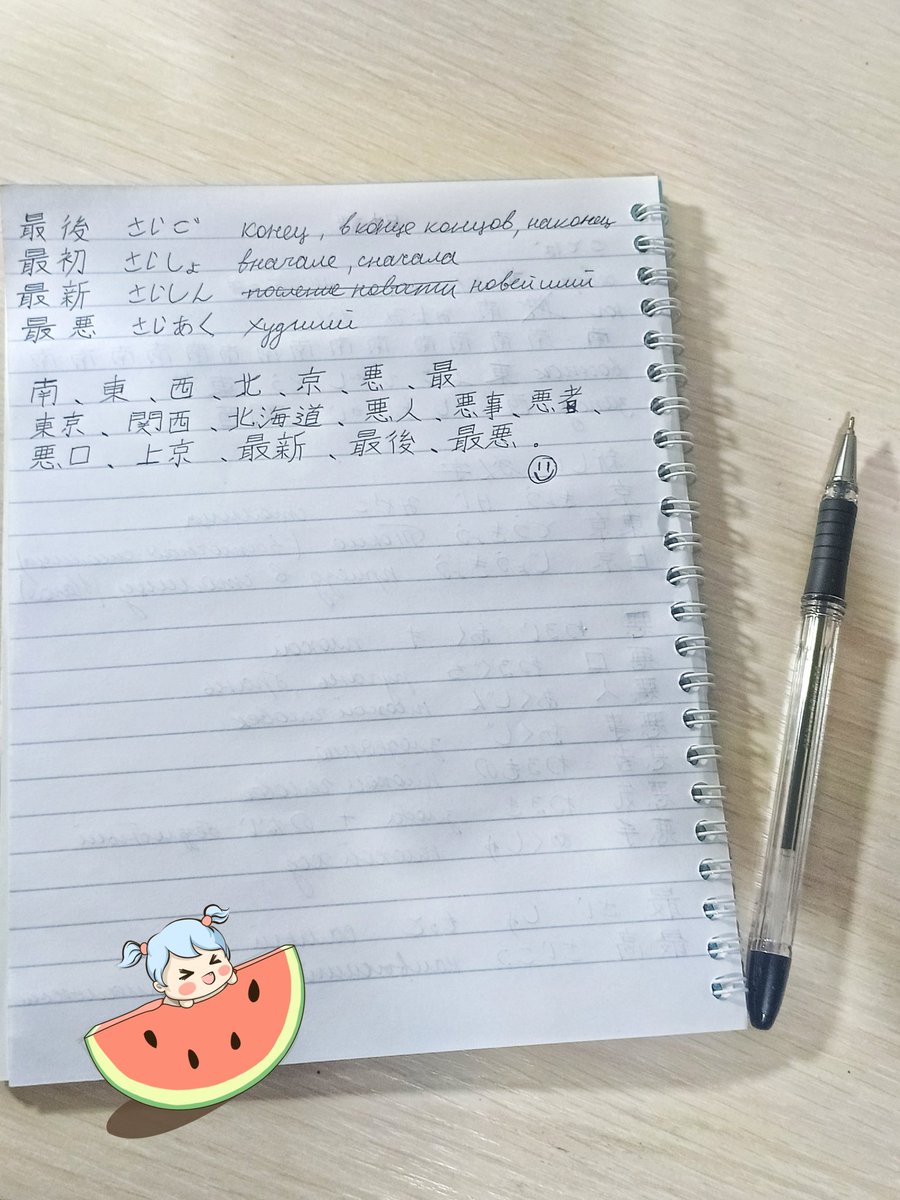 最後 さいご конец, в конце концов, наконец
最初 さいしょ вначале, сначала
最新 さいしん посление новости новейший
最悪 さいあく худший
南、東、西、北、京、悪、最
東京、関西、北海道、悪人、悪事、悪者、
悪口、上京、最新、最後、最悪。